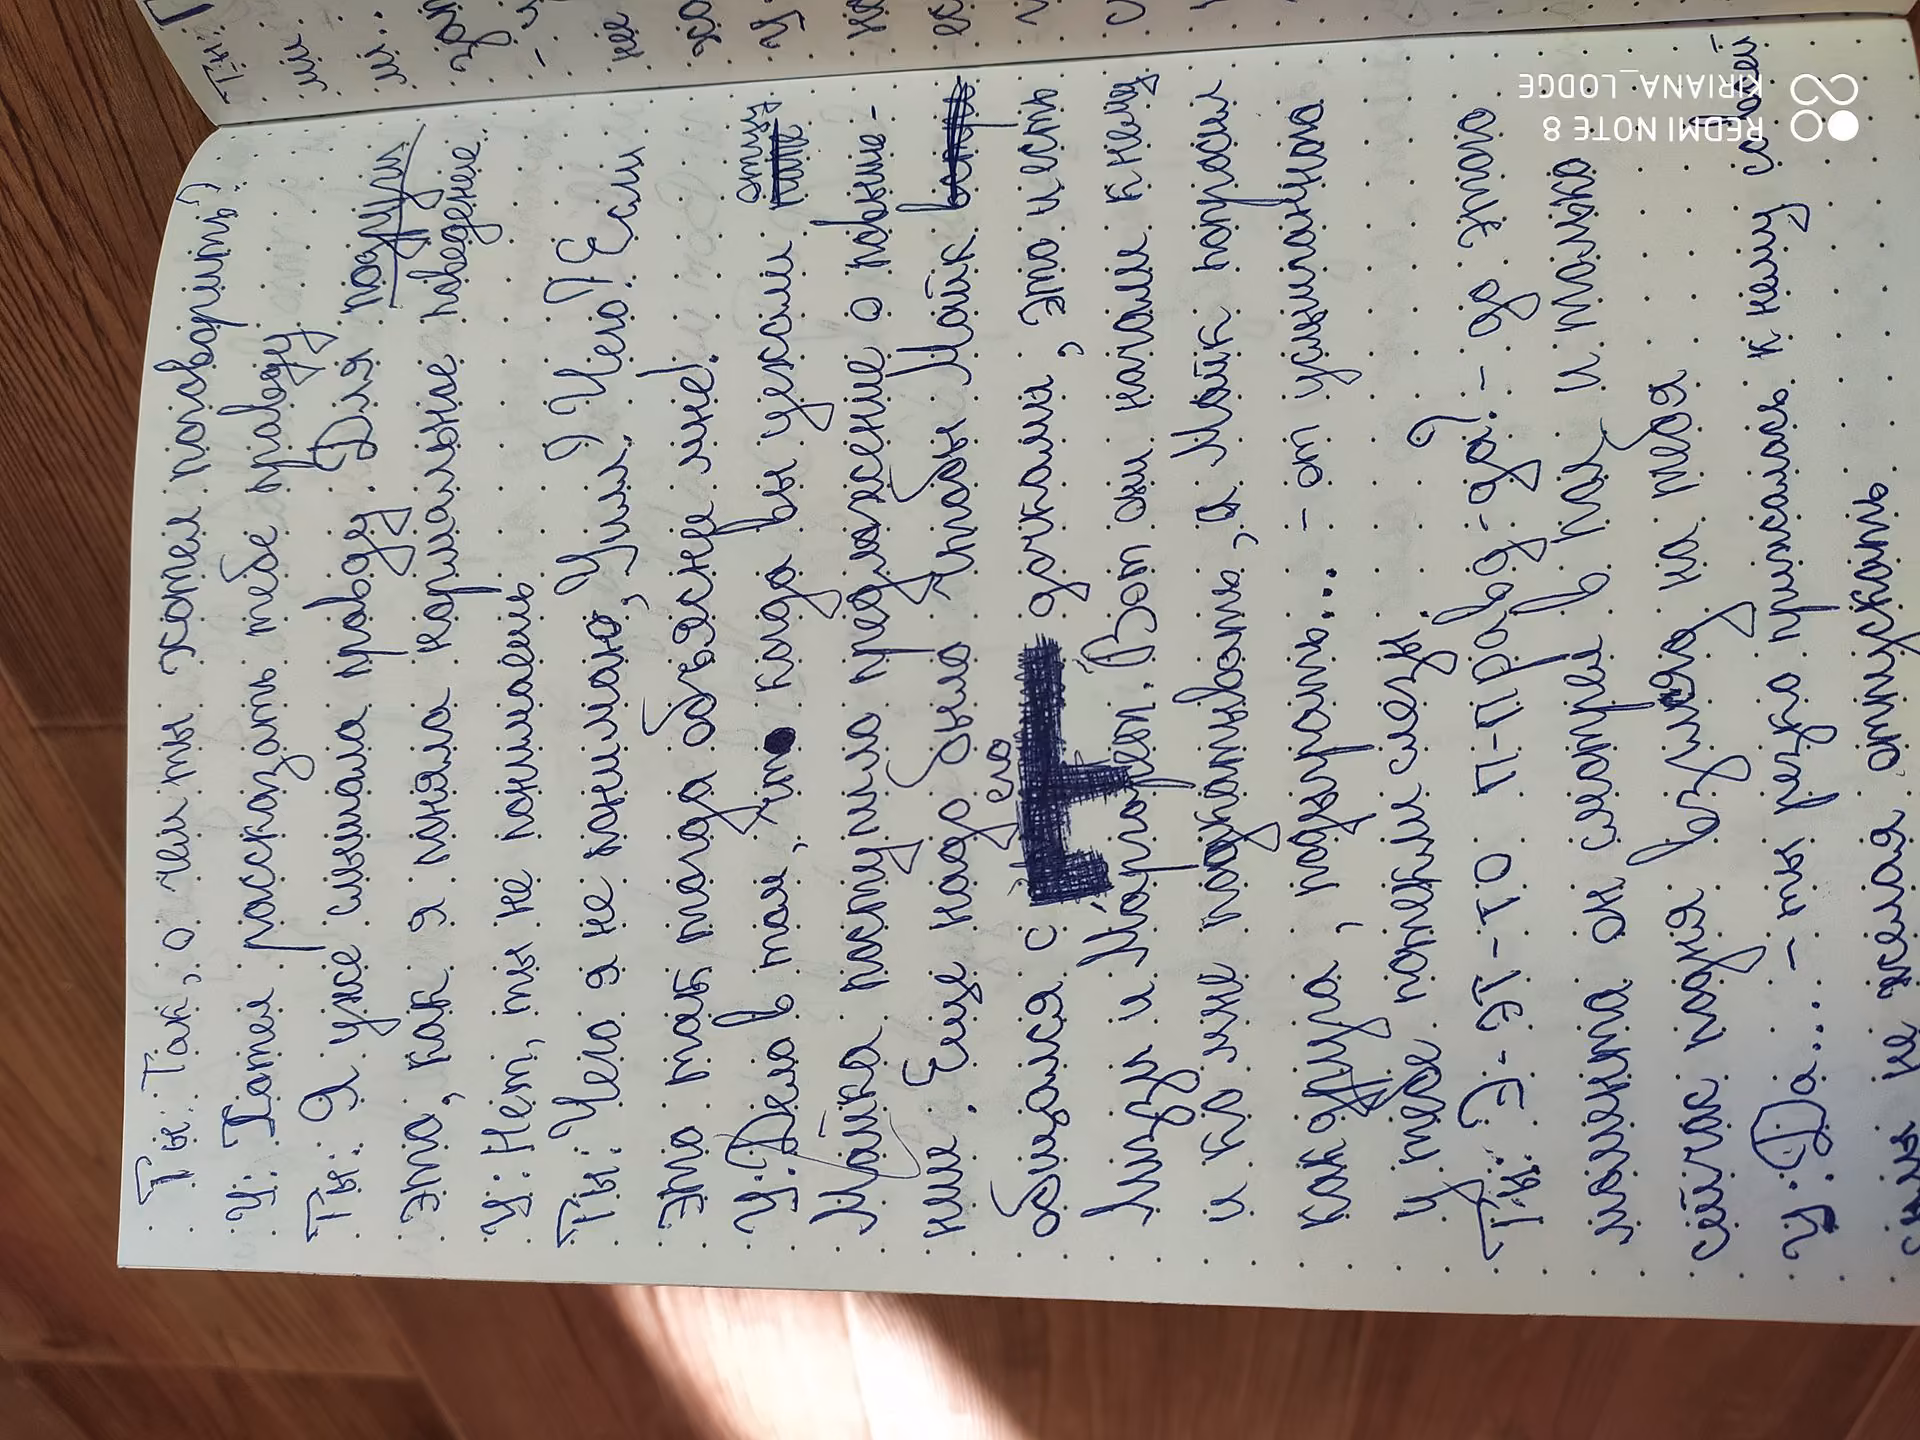 Ты: Так, о чем ты хотел поговорить?
У: Хотел рассказать тебе правду
Ты: Я уже слышала правду. Для подруги
это, как я поняла нормальное поведение.
У: Нет, ты не понимаешь
Ты: Чего я не понимаю, Уилл? Чего? Если
это так тогда объясни мне!
У: Дело в том, что когда вы ушли эту
Майка поступило предложение о повыше-
нии. Еще надо было чтобы Майк
общался с его дочками, это и есть
Лиззи и Маргарет. Вот они начали к нему
и ко мне подкатывать, а Майк попросил
как друга, подыграть... - от услышанного
у тебя потекли слезы.
Ты: Э-ЭТ-ТО П-ПРавд-да? - до этого
момента он смотрел в пол и только
сейчас поднял взгляд на тебя
У: Да... - ты резко прижалась к нему со всей
силы не желая отпускать
REDMI NOTE 8
KIRIANA_LODGE